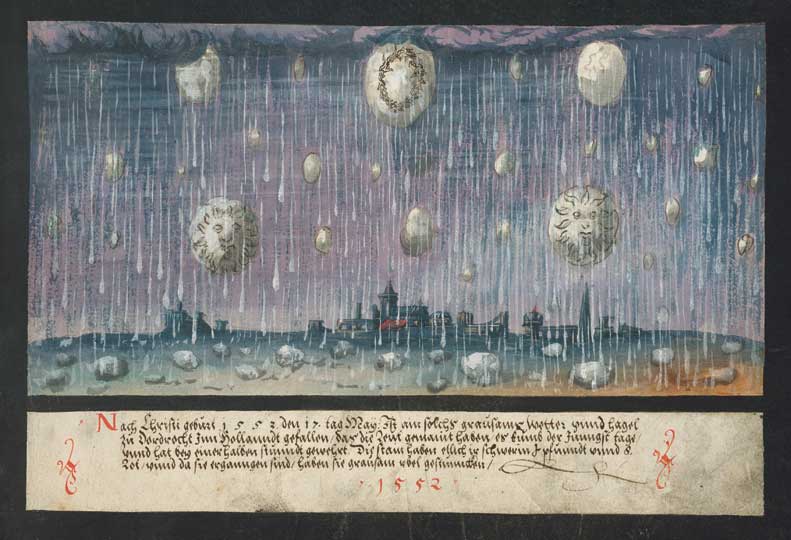 Nach Christi geburt 1552 den 17 tag May Ist ain solchs grausams Wetter vnnd hagel
zu Dordrocht Inn Hollanndt gefallen / das die leut gemaint haben es kumb der Jungst tage /
vnnd hat bey einer halben stunndt gewehrt. Die stain haben etlich schwerin pfundt vnnd 8
Lot / vnnd da sie ergangen sind / haben sie grausam vbel gestunncken /
1552